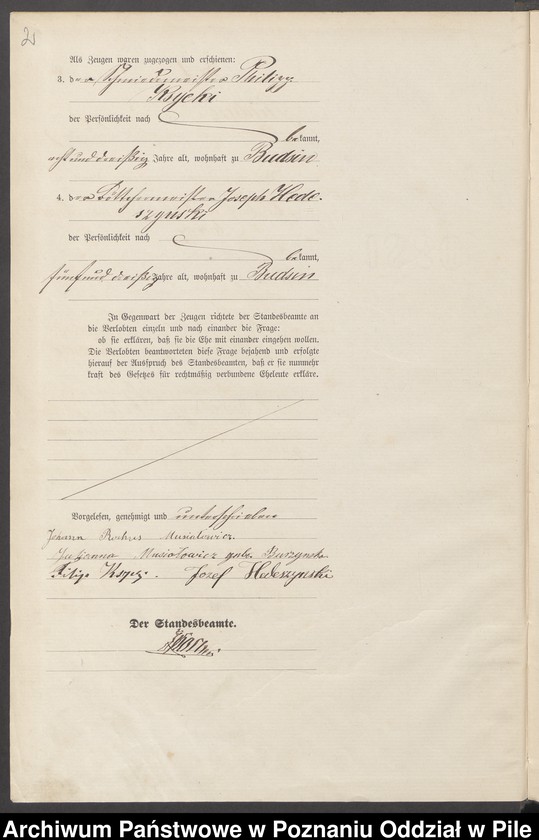 2
Als Zeugen waren zugezogen und erschienen:
3. der Schmiedemeister Philipp
Ksycki
der Persönlichkeit nach
bekannt,
acht und dreißig Jahre alt, wohnhaft zu Budsin
4. der Böttchermeister Joseph Hede-
szynski
der Persönlichkeit nach
bekannt,
fünf und dreißig Jahre alt, wohnhaft zu Budsin
In Gegenwart der Zeugen richtete der Standesbeamte an
die Verlobten einzeln und nach einander die Frage:
ob sie erklären, daß sie die Ehe mit einander eingehen wollen.
Die Verlobten beantworteten diese Frage bejahend und erfolgte
hierauf der Ausspruch des Standesbeamten, daß er sie nunmehr
kraft des Gesetzes für rechtmäßig verbundene Eheleute erkläre.
Vorgelesen, genehmigt und unterschrieben
Johann Musialowicz
Julianna Musiolowicz geb. Burzynska
Filip Józef Hedeszynski
Der Standesbeamte.
Archiwum Państwowe w Poznaniu Oddział w Pile